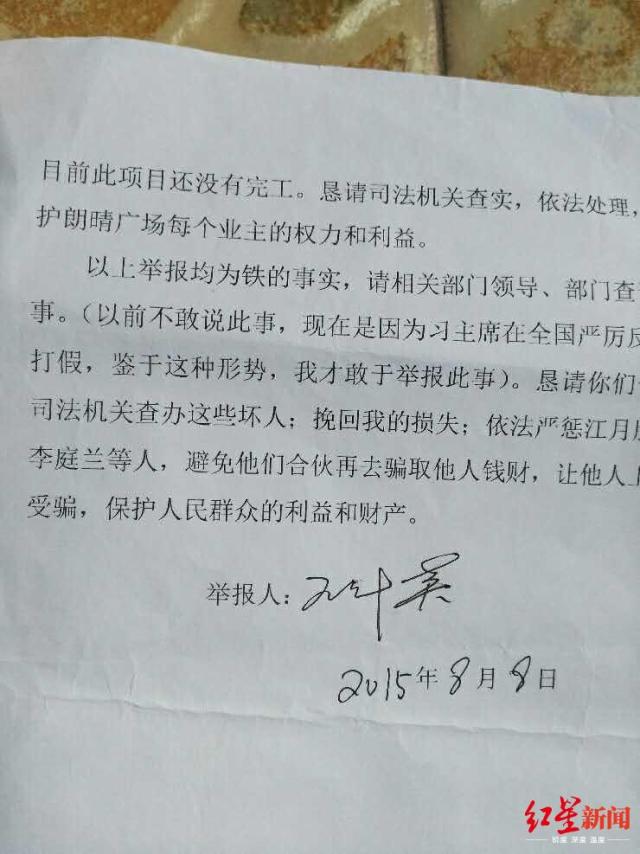 目前此项目还没有完工。恳请司法机关查实，依法处理，
护朗晴广场每个业主的权力和利益。
以上举报均为铁的事实，请相关部门领导、部门查
事。（以前不敢说此事，现在是因为习主席在全国严厉反
打假，鉴于这种形势，我才敢于举报此事）。恳请你们
司法机关查办这些坏人；挽回我的损失；依法严惩江月
李庭兰等人，避免他们合伙再去骗取他人钱财，让他人
受骗，保护人民群众的利益和财产。
举报人：
2015年8月8日
红星新闻
锐度 深度 温度